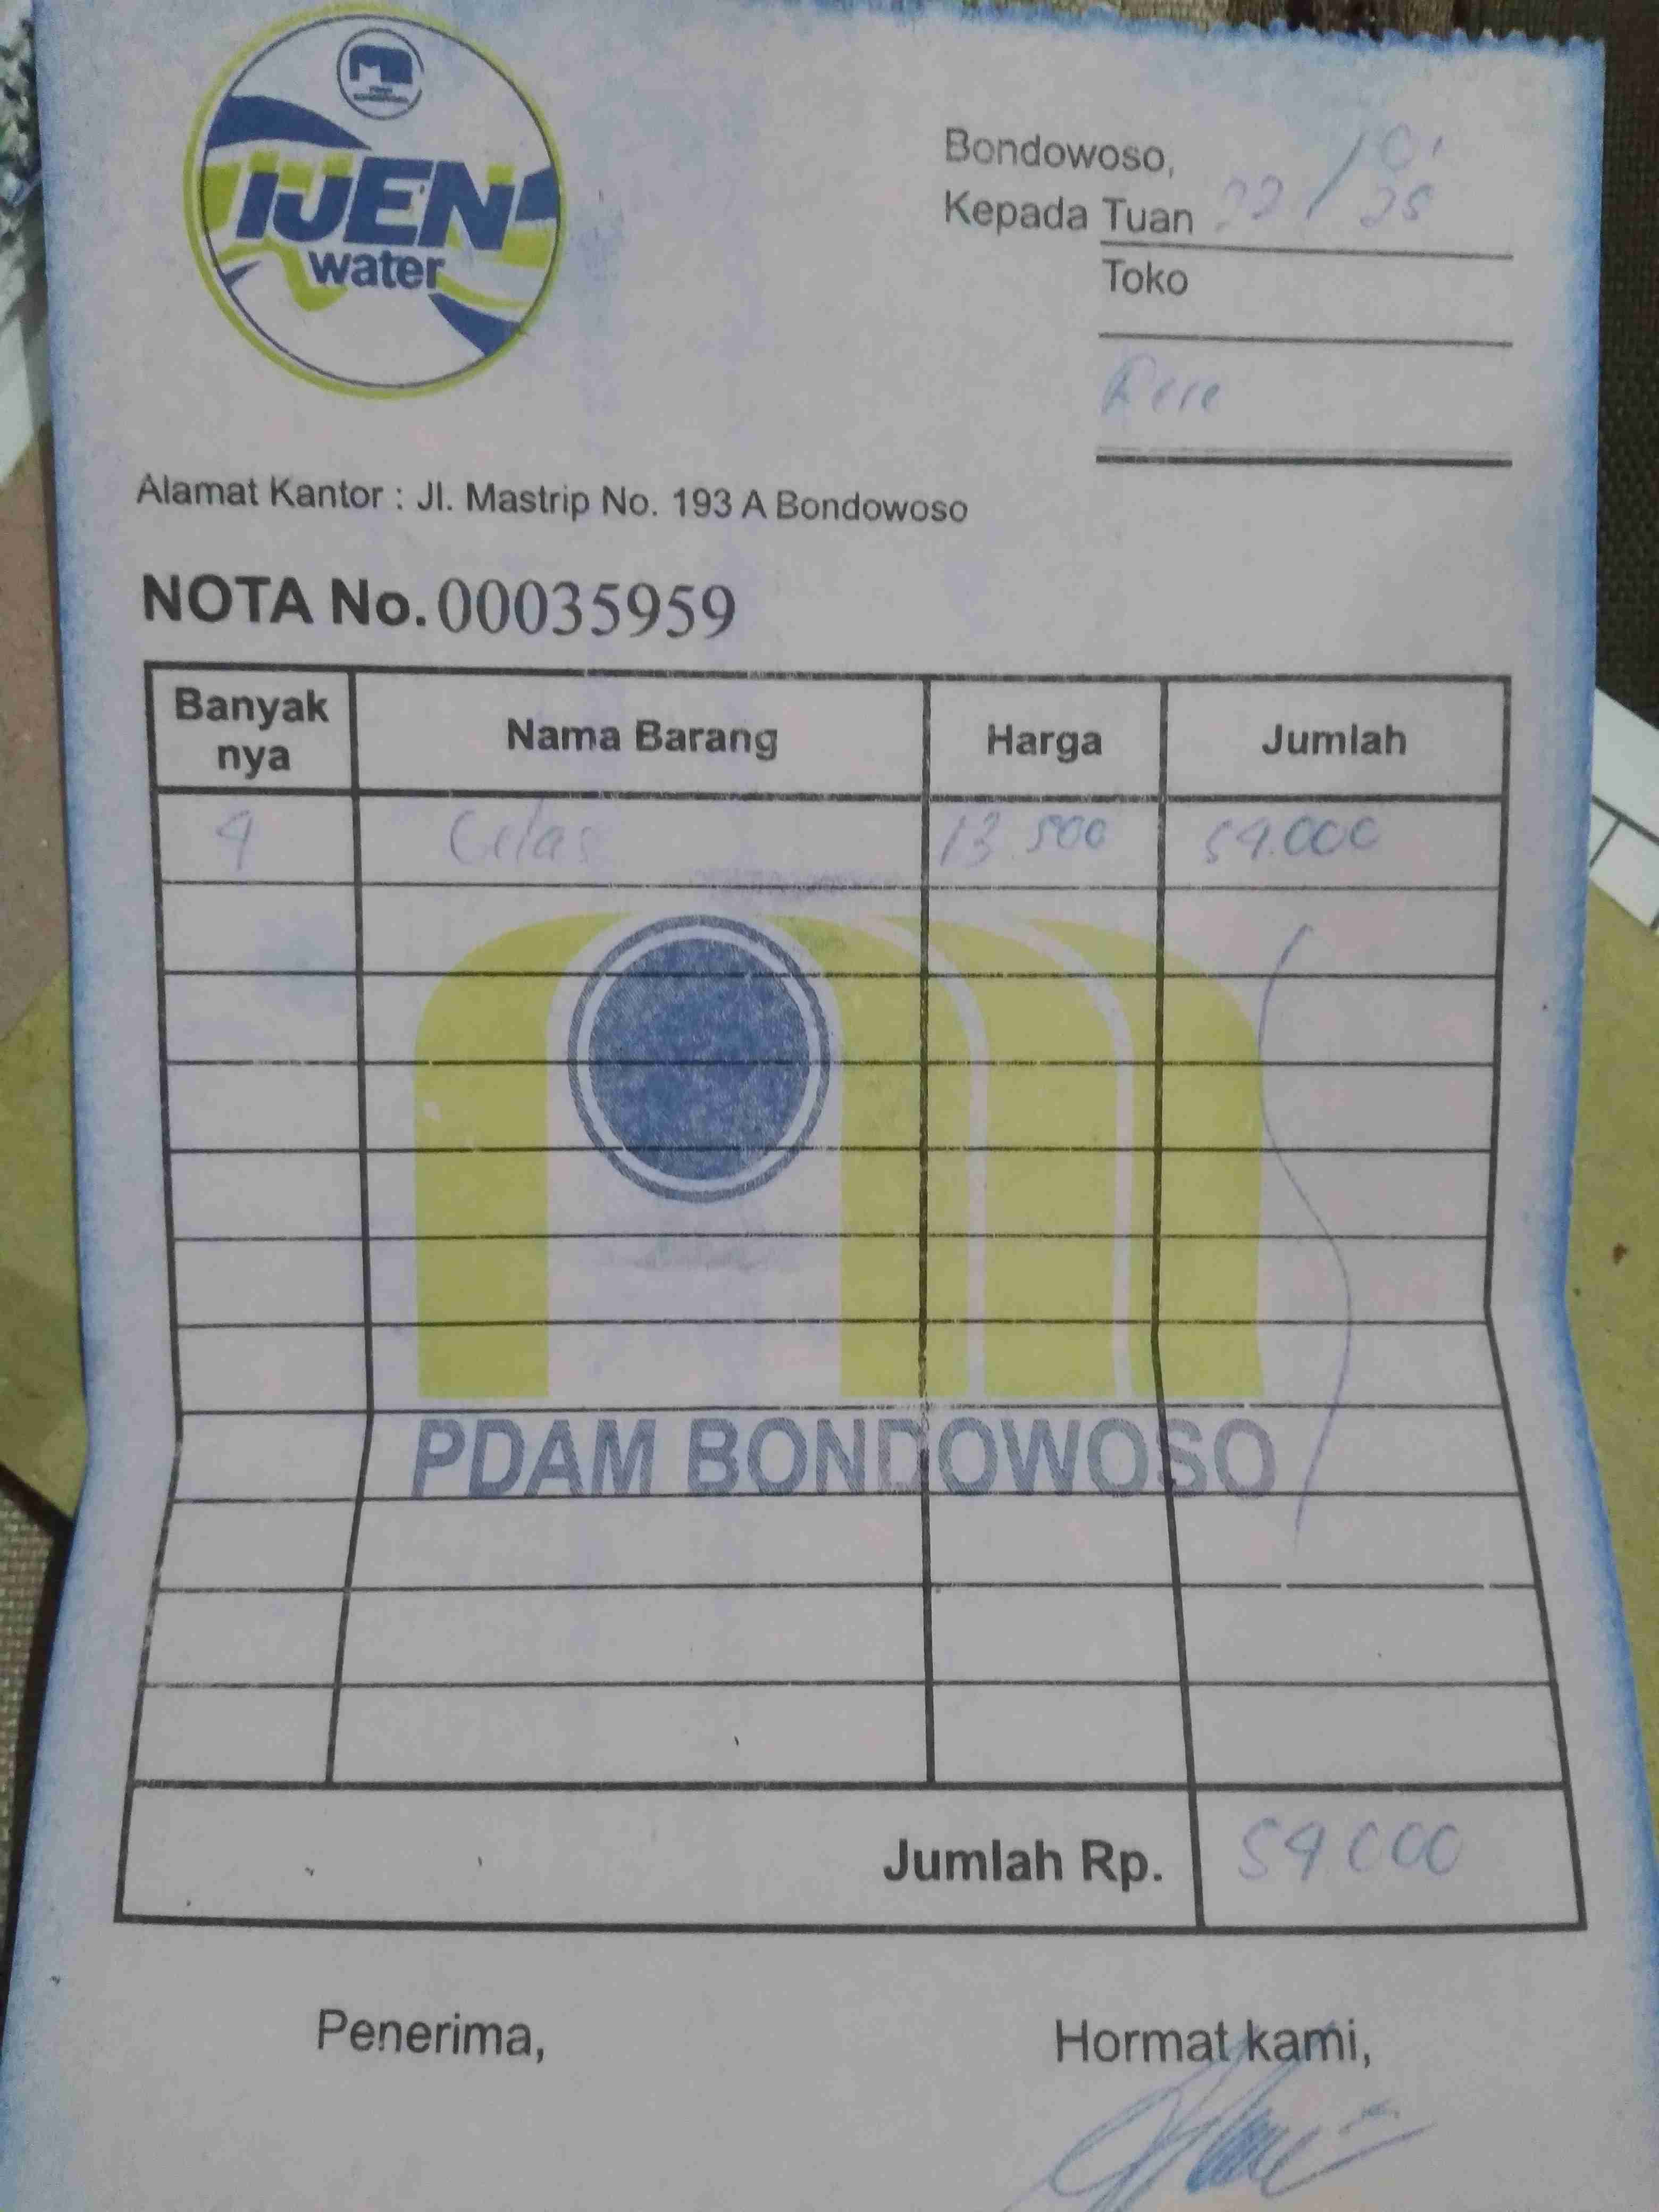 IJEN
water
Bondowoso,
22/01 25
Kepada Tuan
Toko
Rere
Alamat Kantor : Jl. Mastrip No. 193 A Bondowoso
NOTA No. 00035959
Banyak nya Nama Barang Harga Jumlah
4 Gelas 13.500 54.000
PDAM BONDOWOSO
Jumlah Rp. 54.000
Penerima, Hormat kami,